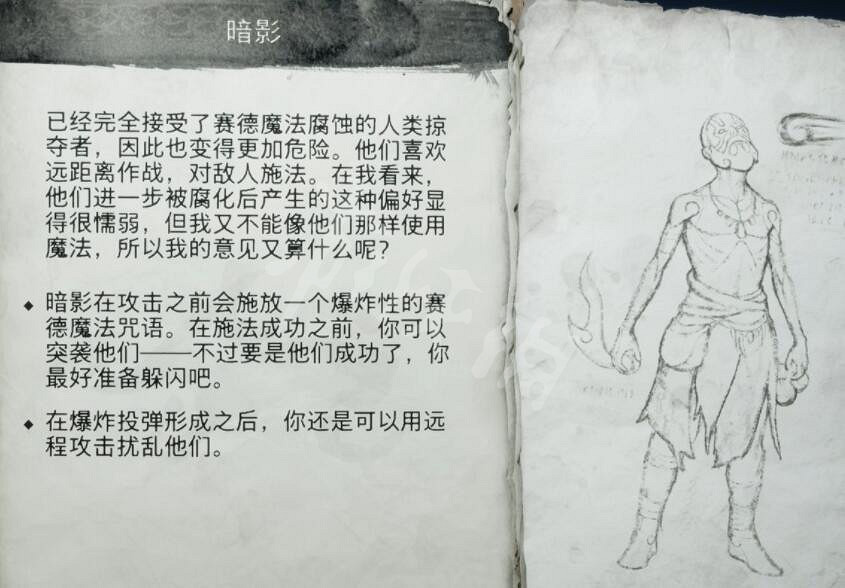 暗影
已经完全接受了赛德魔法腐蚀的人类掠
夺者，因此也变得更加危险。他们喜欢
远距离作战，对敌人施法。在我看来，
他们进一步被腐化后产生的这种偏好显
得很懦弱，但我又不能像他们那样使用
魔法，所以我的意见又算什么呢？
◆ 暗影在攻击之前会施放一个爆炸性的赛
德魔法咒语。在施法成功之前，你可以
突袭他们——不过要是他们成功了，你
最好准备躲闪吧。
◆ 在爆炸投弹形成之后，你还是可以用远
程攻击扰乱他们。